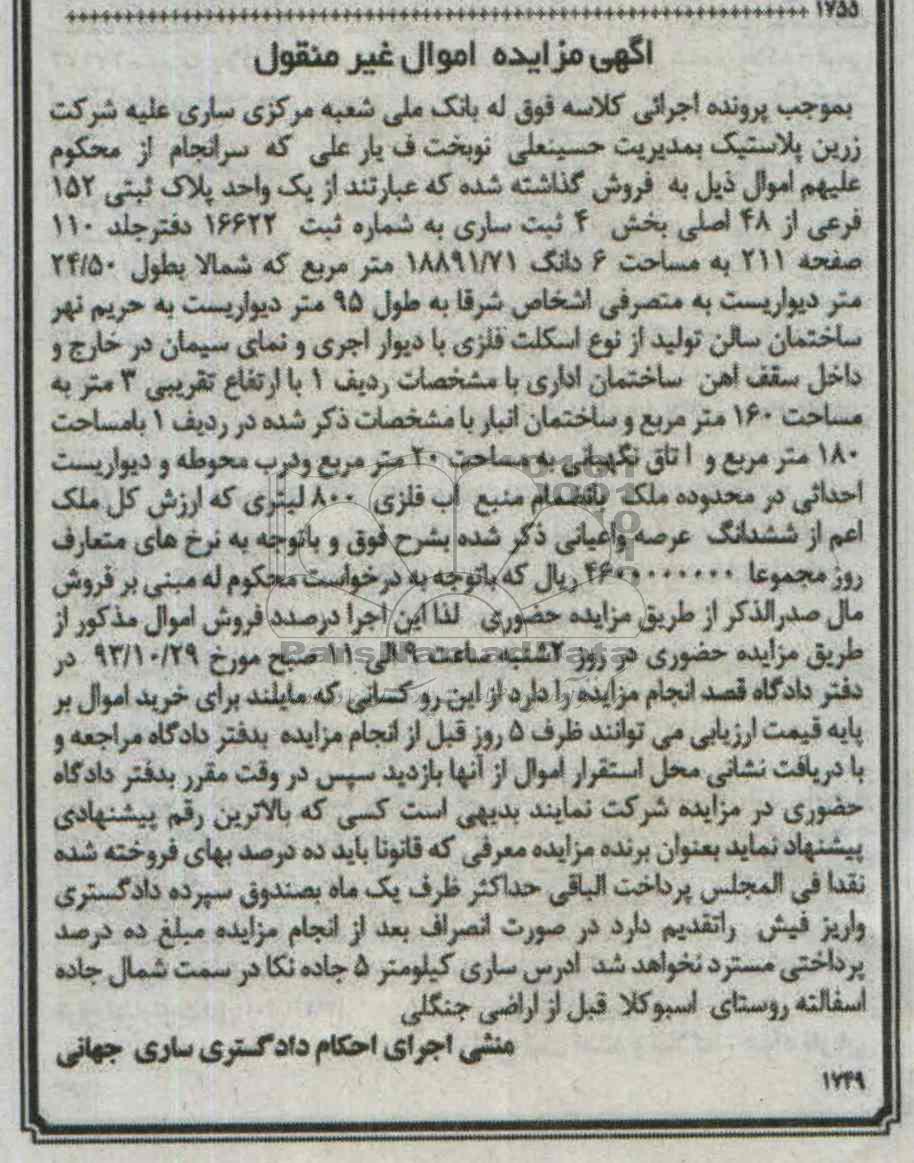 ۱۷۵۵
آگهی مزایده اموال غیر منقول
بموجب پرونده اجرائی کلاسه فوق له بانک ملی شعبه مرکزی ساری علیه شرکت
زرین پلاستیک بمدیریت حسینعلی نوبخت ف یار علی که سرانجام از محکوم
علیهم اموال ذیل به فروش گذاشته شده که عبارتند از یک واحد پلاک ثبتی ۱۵۲
فرعی از ۴۸ اصلی بخش ۴ ثبت ساری به شماره ثبت ۱۶۶۲۲ دفترجلد ۱۱۰
صفحه ۲۱۱ به مساحت ۶ دانگ ۱۸۸۹۱/۷۱ متر مربع که شمالا بطول ۲۴/۵۰
متر دیواریست به متصرفی اشخاص شرقا به طول ۹۵ متر دیواریست به حریم نهر
ساختمان سالن تولید از نوع اسکلت فلزی با دیوار اجری و نمای سیمان در خارج و
داخل سقف اهن ساختمان اداری با مشخصات ردیف ۱ با ارتفاع تقریبی ۳ متر به
مساحت ۱۶۰ متر مربع و ساختمان انبار با مشخصات ذکر شده در ردیف ۱ بامساحت
۱۸۰ متر مربع و اتاق نگهبانی به مساحت ۲۰ متر مربع ودرب محوطه و دیواریست
احداثی در محدوده ملک بانضمام منبع اب فلزی ۸۰۰ لیتری که ارزش کل ملک
اعم از ششدانگ عرصه واعیانی ذکر شده بشرح فوق و باتوجه به نرخ های متعارف
روز مجموعا ریال که باتوجه به درخواست محکوم له مبنی بر فروش
مال صدرالذکر از طریق مزایده حضوری لذا این اجرا درصدد فروش اموال مذکور از
طریق مزایده حضوری در روز ۲شنبه ساعت ۹ الی ۱۱ صبح مورخ ۹۳/۱۰/۲۹ در
دفتر دادگاه قصد انجام مزایده را دارد از این رو کسانی که مایلند برای خرید اموال بر
پایه قیمت ارزیابی می توانند ظرف ۵ روز قبل از انجام مزایده بدفتر دادگاه مراجعه و
با دریافت نشانی محل استقرار اموال از آنها بازدید سپس در وقت مقرر بدفتر دادگاه
حضوری در مزایده شرکت نمایند بدیهی است کسی که بالاترین رقم پیشنهادی
پیشنهاد نماید بعنوان برنده مزایده معرفی که قانونا باید ده درصد بهای فروخته شده
نقدا فی المجلس پرداخت الباقی حداکثر ظرف یک ماه بصندوق سپرده دادگستری
واریز فیش راتقدیم دارد در صورت انصراف بعد از انجام مزایده مبلغ ده درصد
پرداختی مسترد نخواهد شد ادرس ساری کیلومتر ۵ جاده نکا در سمت شمال جاده
اسفالته روستای اسبوکلا قبل از اراضی جنگلی
منشی اجرای احکام دادگستری ساری جهانی
۱۷۴۹